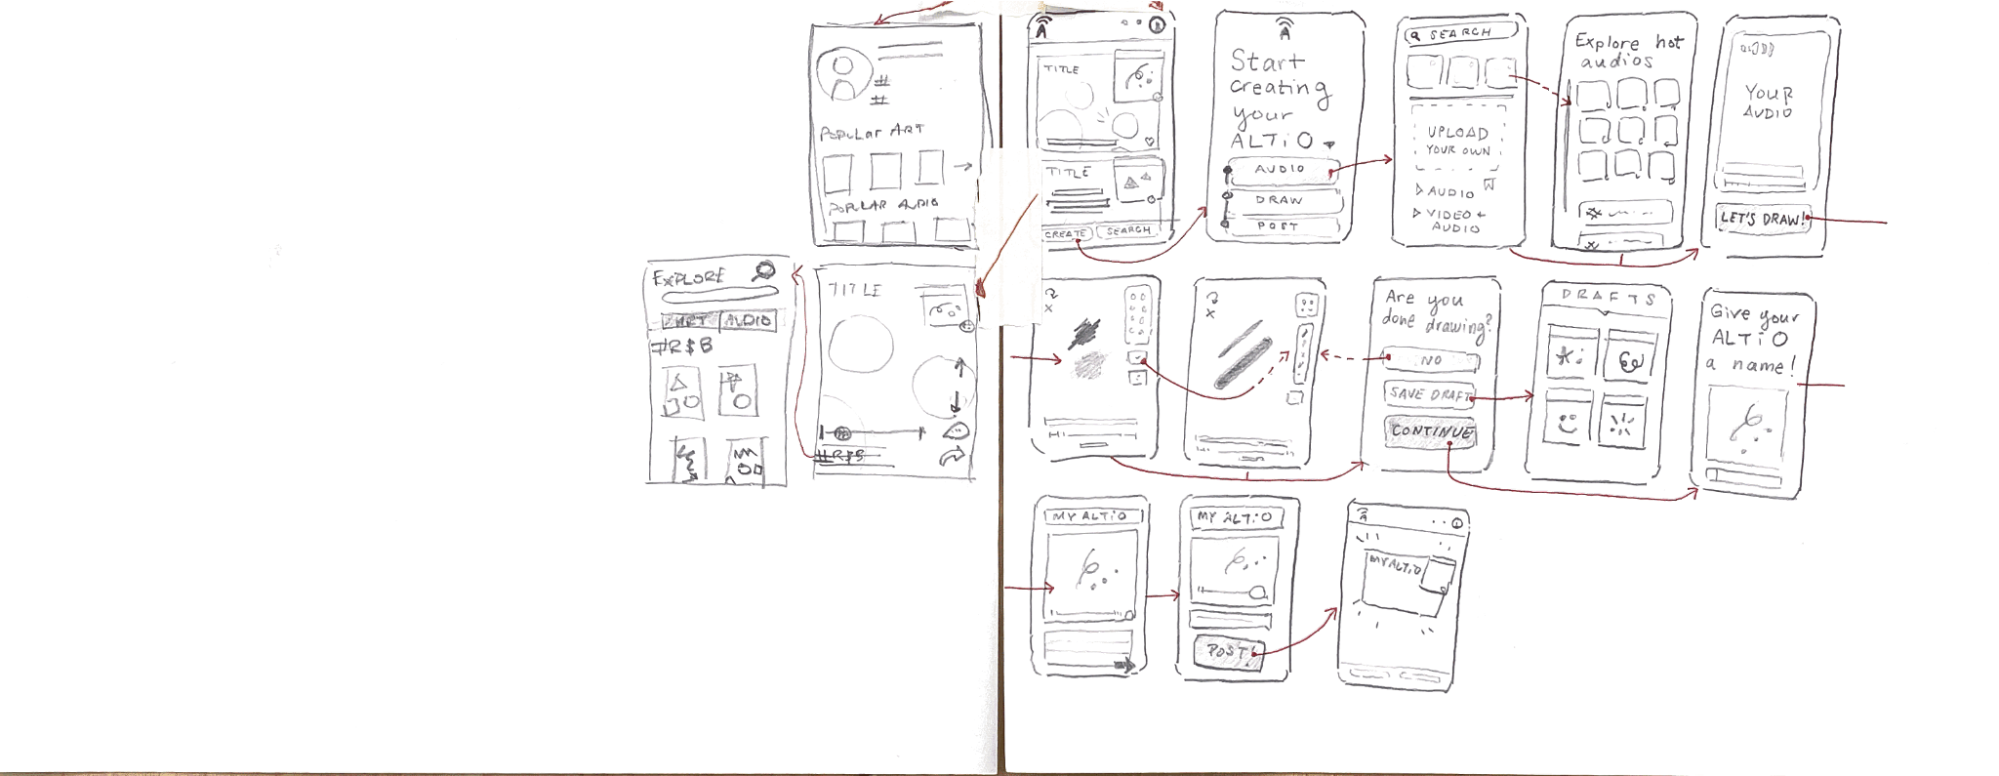 #
#
POPULAR ART
POPULAR AUDIO
EXPLORE
ART AUDIO
#R$B
TITLE
#R$B
A
TITLE
TITLE
CREATE SEARCH
A
Start
creating
your
ALTiO
AUDIO
DRAW
POST
SEARCH
UPLOAD
YOUR OWN
AUDIO
VIDEO +
AUDIO
Explore hot
audios
YOUR
AUDIO
LET'S DRAW!
x
x
Are you
done drawing?
NO
SAVE DRAFT
CONTINUE
DRAFTS
Give your
ALTiO
a name!
MY ALTiO
MY ALTiO
POST!
MY ALTiO